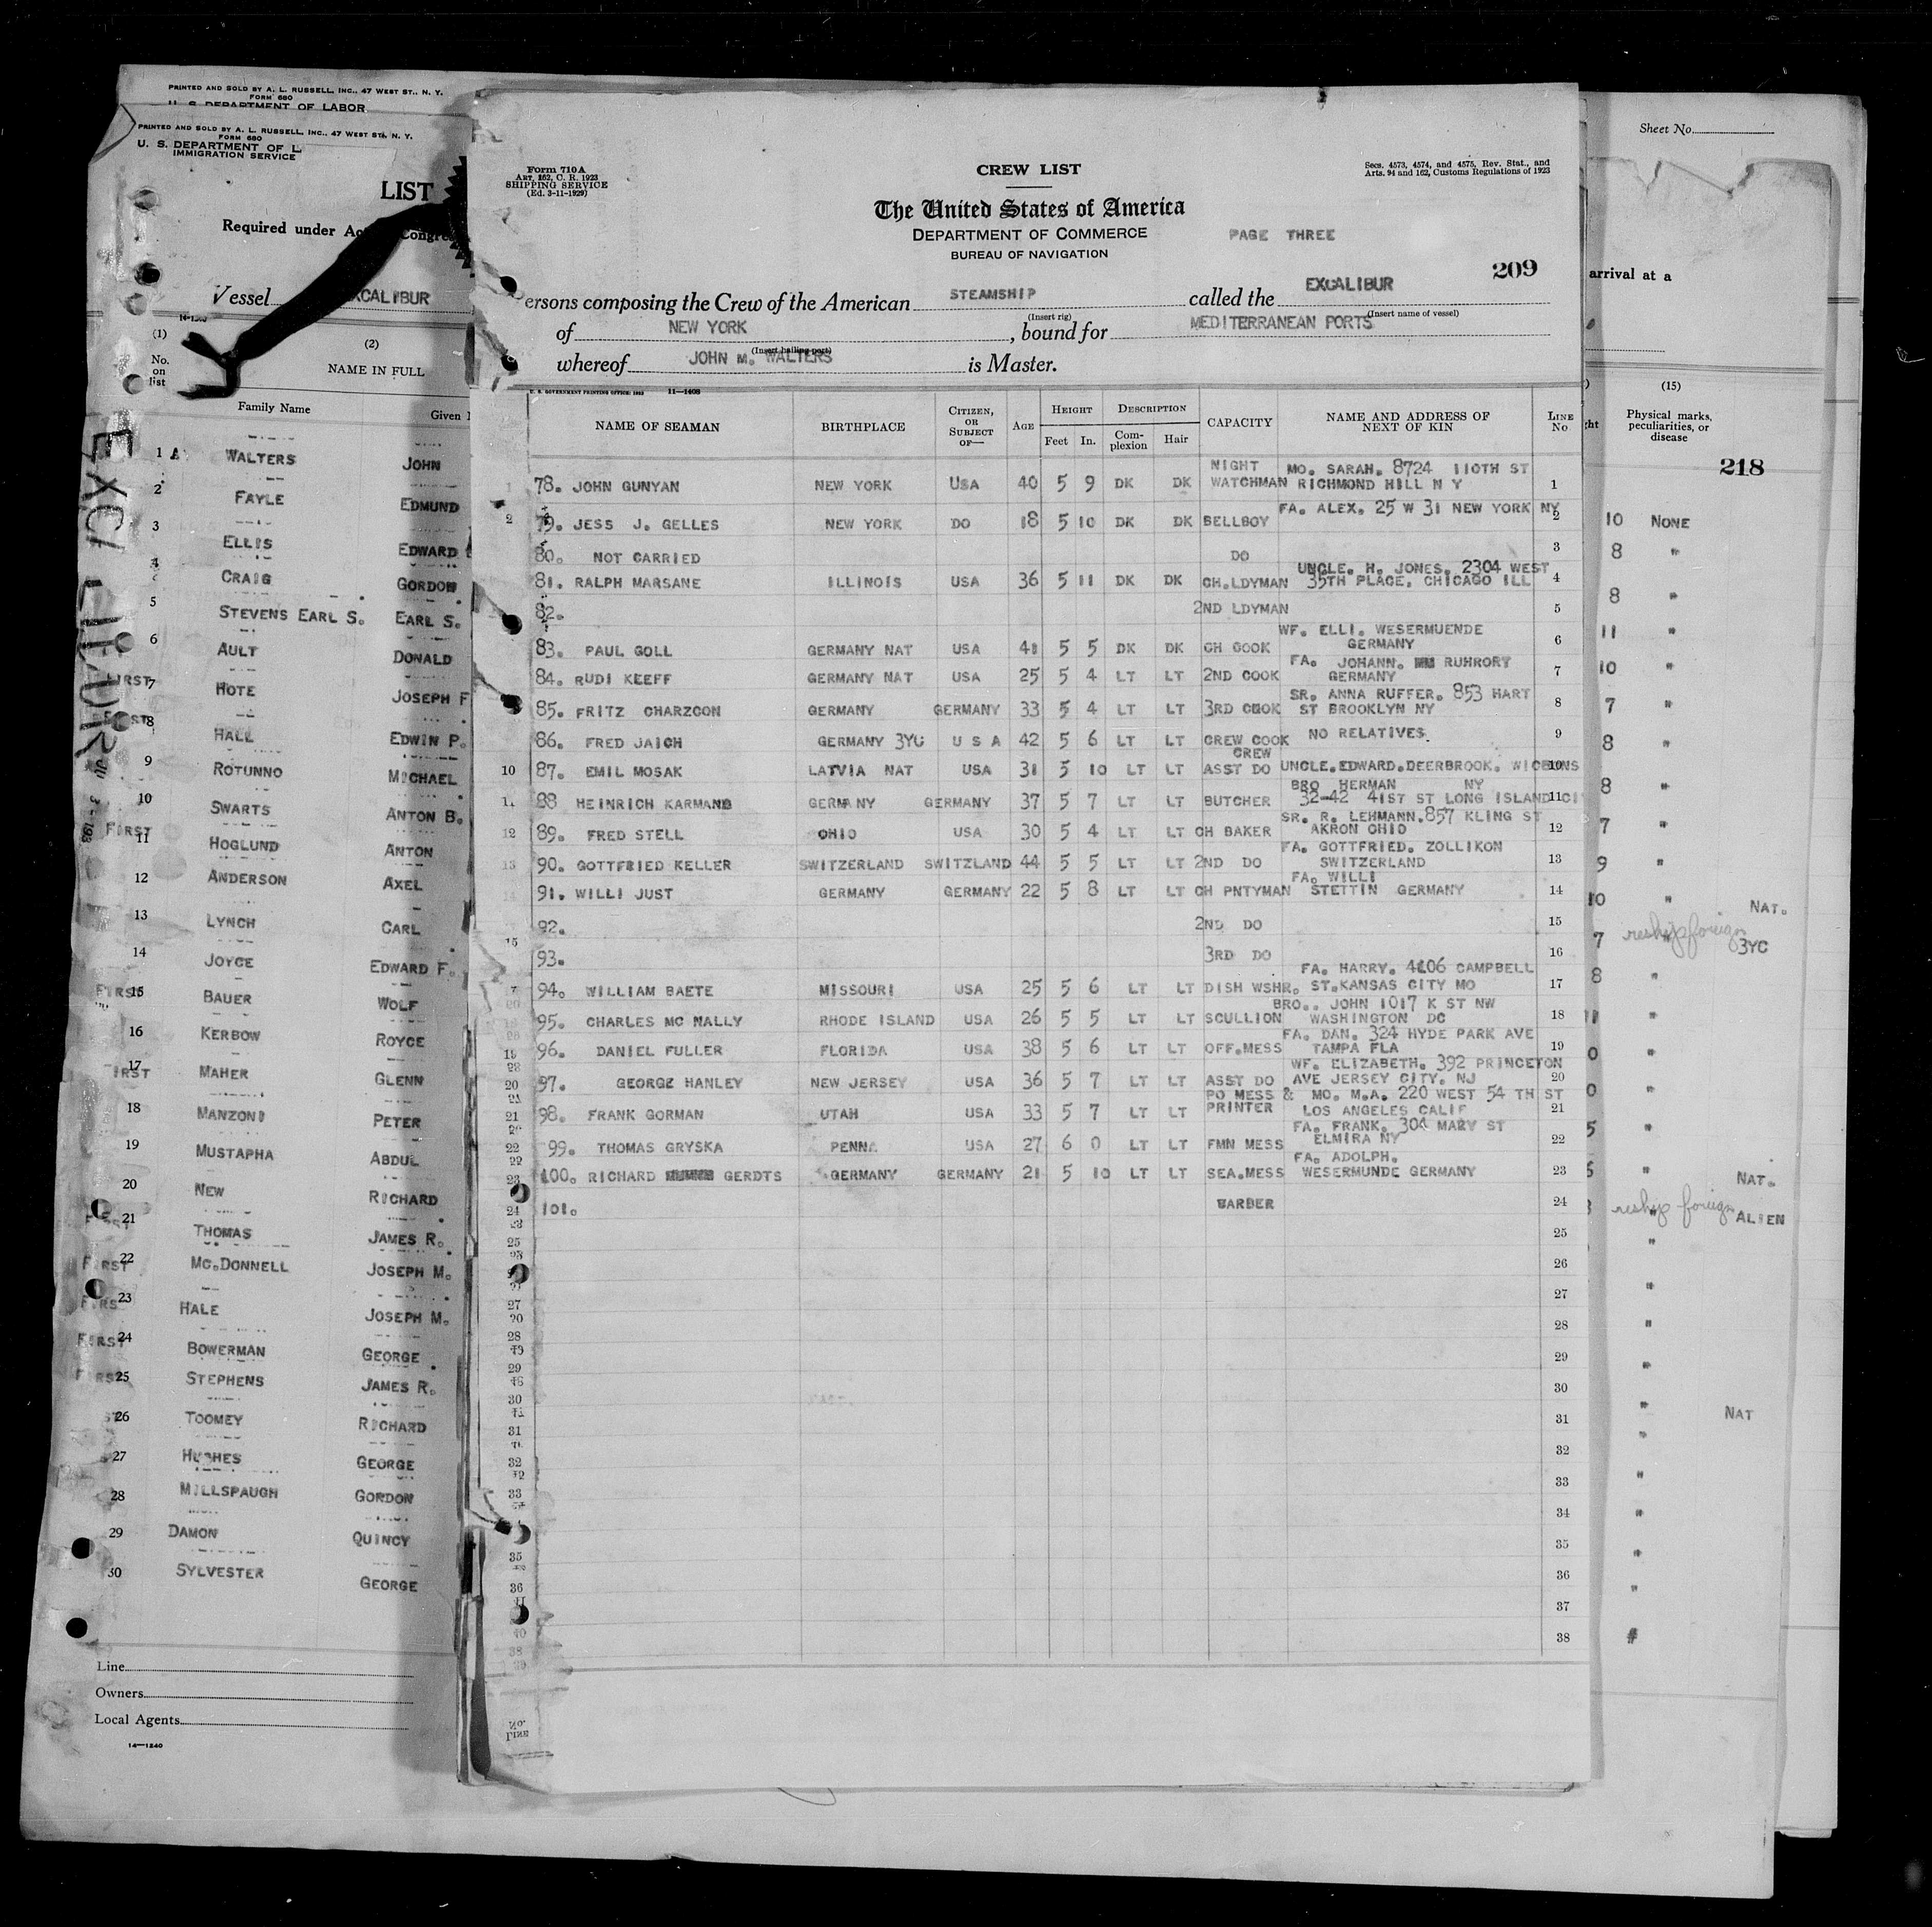 PRINTED AND SOLD BY A. L. RUSSELL, INC., 47 WEST ST., N. Y.
FORM 680
U. S. DEPARTMENT OF LABOR
PRINTED AND SOLD BY A. L. RUSSELL, INC., 47 WEST ST., N. Y.
FORM 680
U. S. DEPARTMENT OF L
IMMIGRATION SERVICE
LIST
Required under Act Congre
Vessel EXCALIBUR
(1) (2)
No. on list NAME IN FULL
Family Name Given
EXCALIBUR
1 WALTERS JOHN
2 FAYLE EDMUND
3 ELLIS EDWARD
4 CRAIG GORDON
5 STEVENS EARL S. EARL S.
6 AULT DONALD
FIRST 7 HOTE JOSEPH F
8 HALL EDWIN P.
9 ROTUNNO MICHAEL
10 SWARTS ANTON B.
FIRST 11 HOGLUND ANTON
12 ANDERSON AXEL
13 LYNCH CARL
14 JOYCE EDWARD F.
FIRST 15 BAUER WOLF
16 KERBOW ROYCE
17 MAHER GLENN
18 MANZONI PETER
19 MUSTAPHA ABDUL
20 NEW RICHARD
21 THOMAS JAMES R.
FIRST 22 MC.DONNELL JOSEPH M.
23 HALE JOSEPH M.
FIRST 24 BOWERMAN GEORGE
25 STEPHENS JAMES R.
26 TOOMEY RICHARD
27 HUGHES GEORGE
28 MILLSPAUGH GORDON
29 DAMON QUINCY
30 SYLVESTER GEORGE
Line
Owners
Local Agents
14—1240
Form 710 A
ART. 162, C. R. 1923
SHIPPING SERVICE
(Ed. 3-11-1929)
CREW LIST
Secs. 4573, 4574, and 4575, Rev. Stat., and
Arts. 94 and 162, Customs Regulations of 1923
The United States of America
DEPARTMENT OF COMMERCE
PAGE THREE
BUREAU OF NAVIGATION
209
ersons composing the Crew of the American STEAMSHIP called the EXCALIBUR
(Insert rig) (Insert name of vessel)
of NEW YORK, bound for MEDITERRANEAN PORTS
(Insert hailing port)
whereof JOHN M. WALTERS is Master.
11—1408
NAME OF SEAMAN BIRTHPLACE CITIZEN, OR SUBJECT OF— AGE HEIGHT Feet In. DESCRIPTION Complexion Hair CAPACITY NAME AND ADDRESS OF NEXT OF KIN LINE No
78. JOHN GUNYAN NEW YORK USA 40 5 9 DK DK NIGHT WATCHMAN MO. SARAH. 8724 110TH ST RICHMOND HILL N Y 1
79. JESS J. GELLES NEW YORK DO 18 5 10 DK DK BELLBOY FA. ALEX. 25 W 31 NEW YORK NY 2
80. NOT CARRIED DO 3
81. RALPH MARSANE ILLINOIS USA 36 5 11 DK DK CH.LDYMAN UNCLE. H. JONES. 2304 WEST 35TH PLACE. CHICAGO ILL 4
82. 2ND LDYMAN 5
83. PAUL GOLL GERMANY NAT USA 41 5 5 DK DK CH COOK WF. ELLI. WESERMUENDE GERMANY 6
84. RUDI KEEFF GERMANY NAT USA 25 5 4 LT LT 2ND COOK FA. JOHANN. RUHRORY GERMANY 7
85. FRITZ CHARZCON GERMANY GERMANY 33 5 4 LT LT 3RD COOK SR. ANNA RUFFER. 853 HART ST BROOKLYN NY 8
86. FRED JAICH GERMANY 3YC U S A 42 5 6 LT LT CREW COOK NO RELATIVES. 9
87. EMIL MOSAK LATVIA NAT USA 31 5 10 LT LT CREW ASST DO UNCLE.EDWARD.DEERBROOK. 10
88 HEINRICH KARMANN GERMANY GERMANY 37 5 7 LT LT BUTCHER BRO HERMAN NY 32-42 41ST ST LONG ISLAND CI 11
89. FRED STELL OHIO USA 30 5 4 LT LT CH BAKER SR. R. LEHMANN.857 KLING ST AKRON OHIO 12
90. GOTTFRIED KELLER SWITZERLAND SWITZLAND 44 5 5 LT LT 2ND DO FA. GOTTFRIED. ZOLLIKON SWITZERLAND 13
91. WILLI JUST GERMANY GERMANY 22 5 8 LT LT CH PNTYMAN FA. WILLI STETTIN GERMANY 14
92. 2ND DO 15
93. 3RD DO 16
94. WILLIAM BAETE MISSOURI USA 25 5 6 LT LT DISH WSHR. FA. HARRY. 4406 CAMPBELL ST.KANSAS CITY MO 17
95. CHARLES MC NALLY RHODE ISLAND USA 26 5 5 LT LT SCULLION BRO.. JOHN 1017 K ST NW WASHINGTON DC 18
96. DANIEL FULLER FLORIDA USA 38 5 6 LT LT OFF.MESS FA. DAN. 324 HYDE PARK AVE TAMPA FLA 19
97. GEORGE HANLEY NEW JERSEY USA 36 5 7 LT LT ASST DO WF. ELIZABETH. 392 PRINCETON AVE JERSEY CITY. NJ 20
98. FRANK GORMAN UTAH USA 33 5 7 LT LT PO MESS & PRINTER MO. M.A. 220 WEST 54 TH ST LOS ANGELES CALIF 21
99. THOMAS GRYSKA PENNA USA 27 6 0 LT LT FMN MESS FA. FRANK. 304 MARY ST ELMIRA NY 22
100. RICHARD GERDTS GERMANY GERMANY 21 5 10 LT LT SEA.MESS FA. ADOLPH. WESERMUNDE GERMANY 23
101. BARBER 24
25
26
27
28
29
30
31
32
33
34
35
36
37
38
Sheet No.
arrival at a
(15)
Physical marks, peculiarities, or disease
218
10 NONE
8 "
8 "
11 "
10 "
7 "
8 "
8 "
7 "
9 "
10 " NAT.
7 reship foreign 3YC
8 "
NAT.
reship foreign ALIEN
NAT